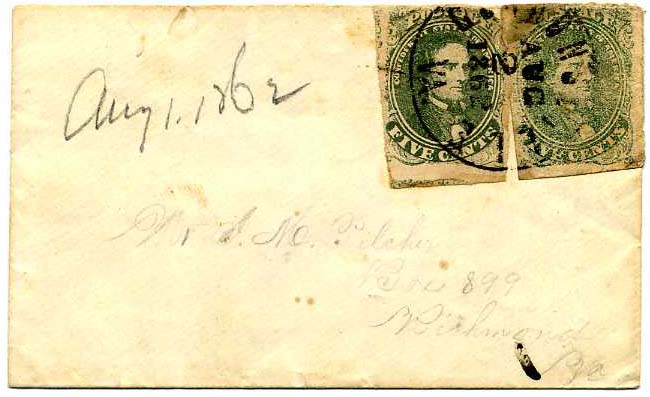 Aug 1. 1862
FIVE CENTS
CENTS
AUG
1862
VA
Mr S. M. Pilcher
Box 899
Richmond
Va